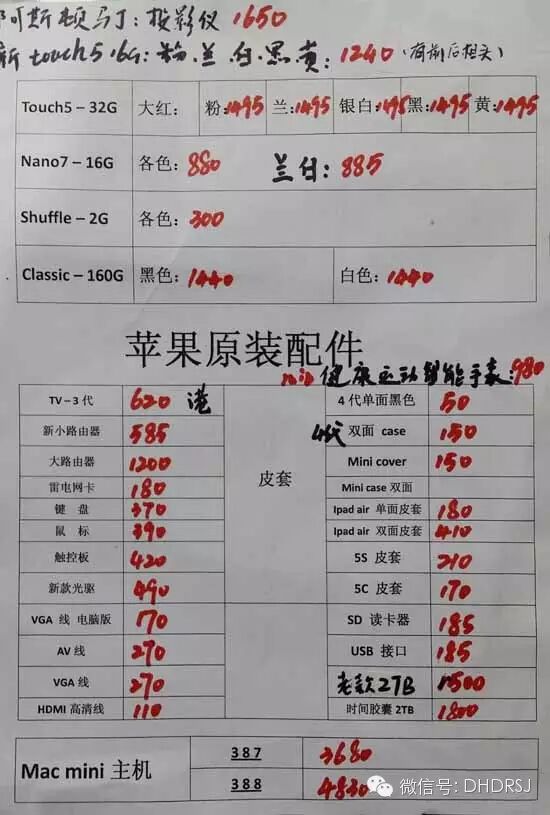 阿斯顿马丁:投影仪 1650
新 touch5 16G: 粉.兰.白.黑.黄: 1240 (有前后摄头)
Touch5 – 32G 大红: 粉:1495 兰:1495 银白:1495 黑:1495 黄:1495
Nano7 – 16G 各色: 880 兰白: 885
Shuffle – 2G 各色: 300
Classic – 160G 黑色: 1440 白色: 1440
苹果原装配件
健康运动智能手表: 980
TV – 3 代 620 港 皮套 4 代单面黑色 50
新小路由器 585 4代 双面 case 150
大路由器 1200 Mini cover 150
雷电网卡 180 Mini case 双面
键 盘 370 Ipad air 单面皮套 180
鼠 标 390 Ipad air 双面皮套 410
触控板 420 5S 皮套 210
新款光驱 490 5C 皮套 170
VGA 线 电脑版 170 SD 读卡器 185
AV 线 270 USB 接口 185
VGA 线 270 老款2TB 1500
HDMI 高清线 110 时间胶囊 2TB 1800
Mac mini 主机 387 3680
388 4830
微信号: DHDRSJ